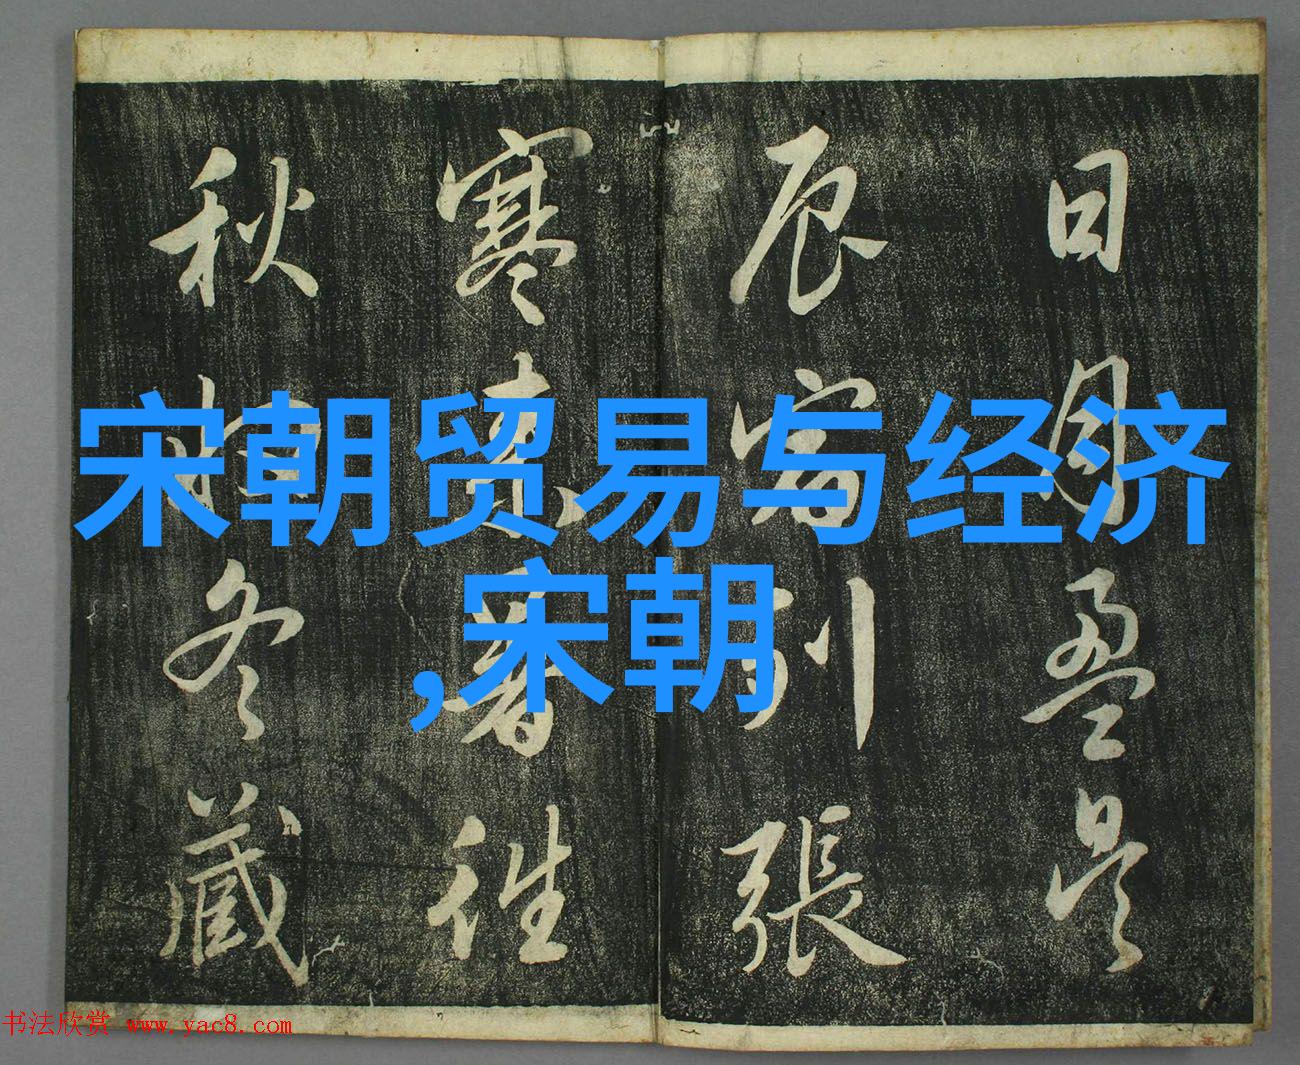 日月盈昃
辰宿列張
寒來暑往
秋收冬藏
宋朝贸易与经济
,宋朝
书法欣赏 www.yac8.com